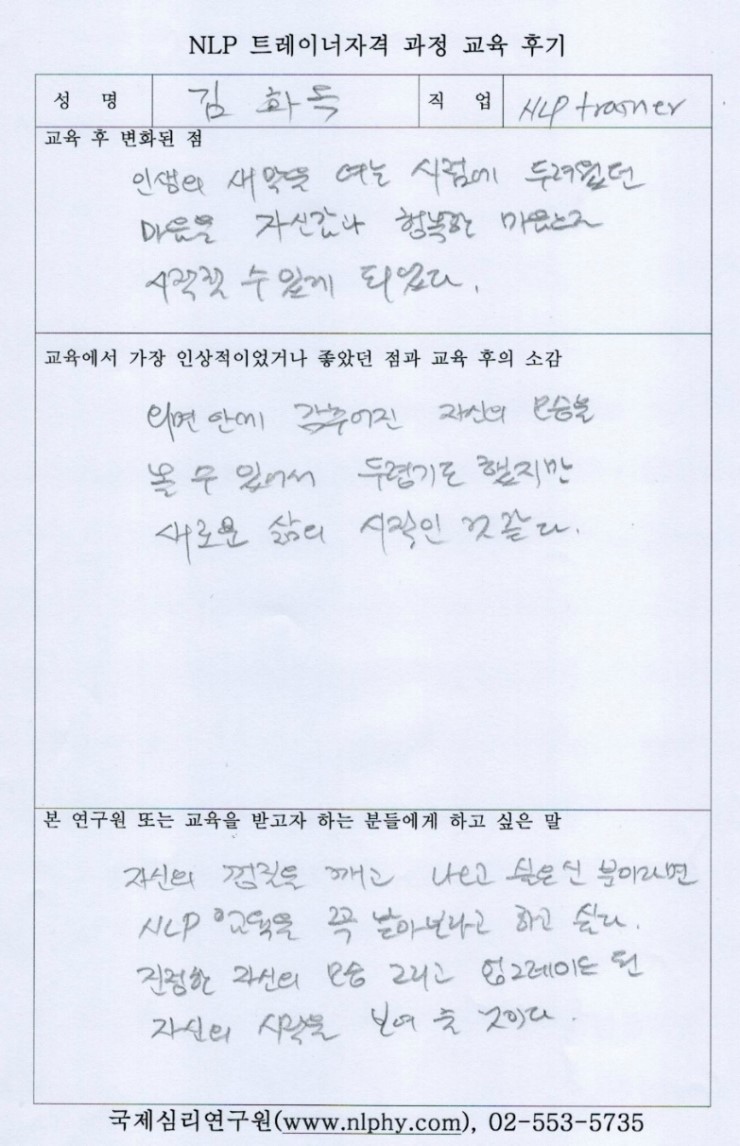 NLP 트레이너자격 과정 교육 후기
성 명 김 화 득 직 업 NLP trainer
교육 후 변화된 점
인생의 새 막을 여는 시점에 두려웠던
마음을 자신감과 행복한 마음으로
시작할 수 있게 되었다.
교육에서 가장 인상적이었거나 좋았던 점과 교육 후의 소감
외면 안에 감추어진 자신의 모습을
볼 수 있어서 두렵기도 했지만
새로운 삶의 시작인 것 같다.
본 연구원 또는 교육을 받고자 하는 분들에게 하고 싶은 말
자신의 껍질을 깨고 나오고 싶은신 분이라면
NLP 교육을 꼭 받아보라고 하고 싶다.
진정한 자신의 모습 그리고 업그레이드 된
자신의 시작을 보여 줄 것이다.
국제심리연구원(www.nlphy.com), 02-553-5735